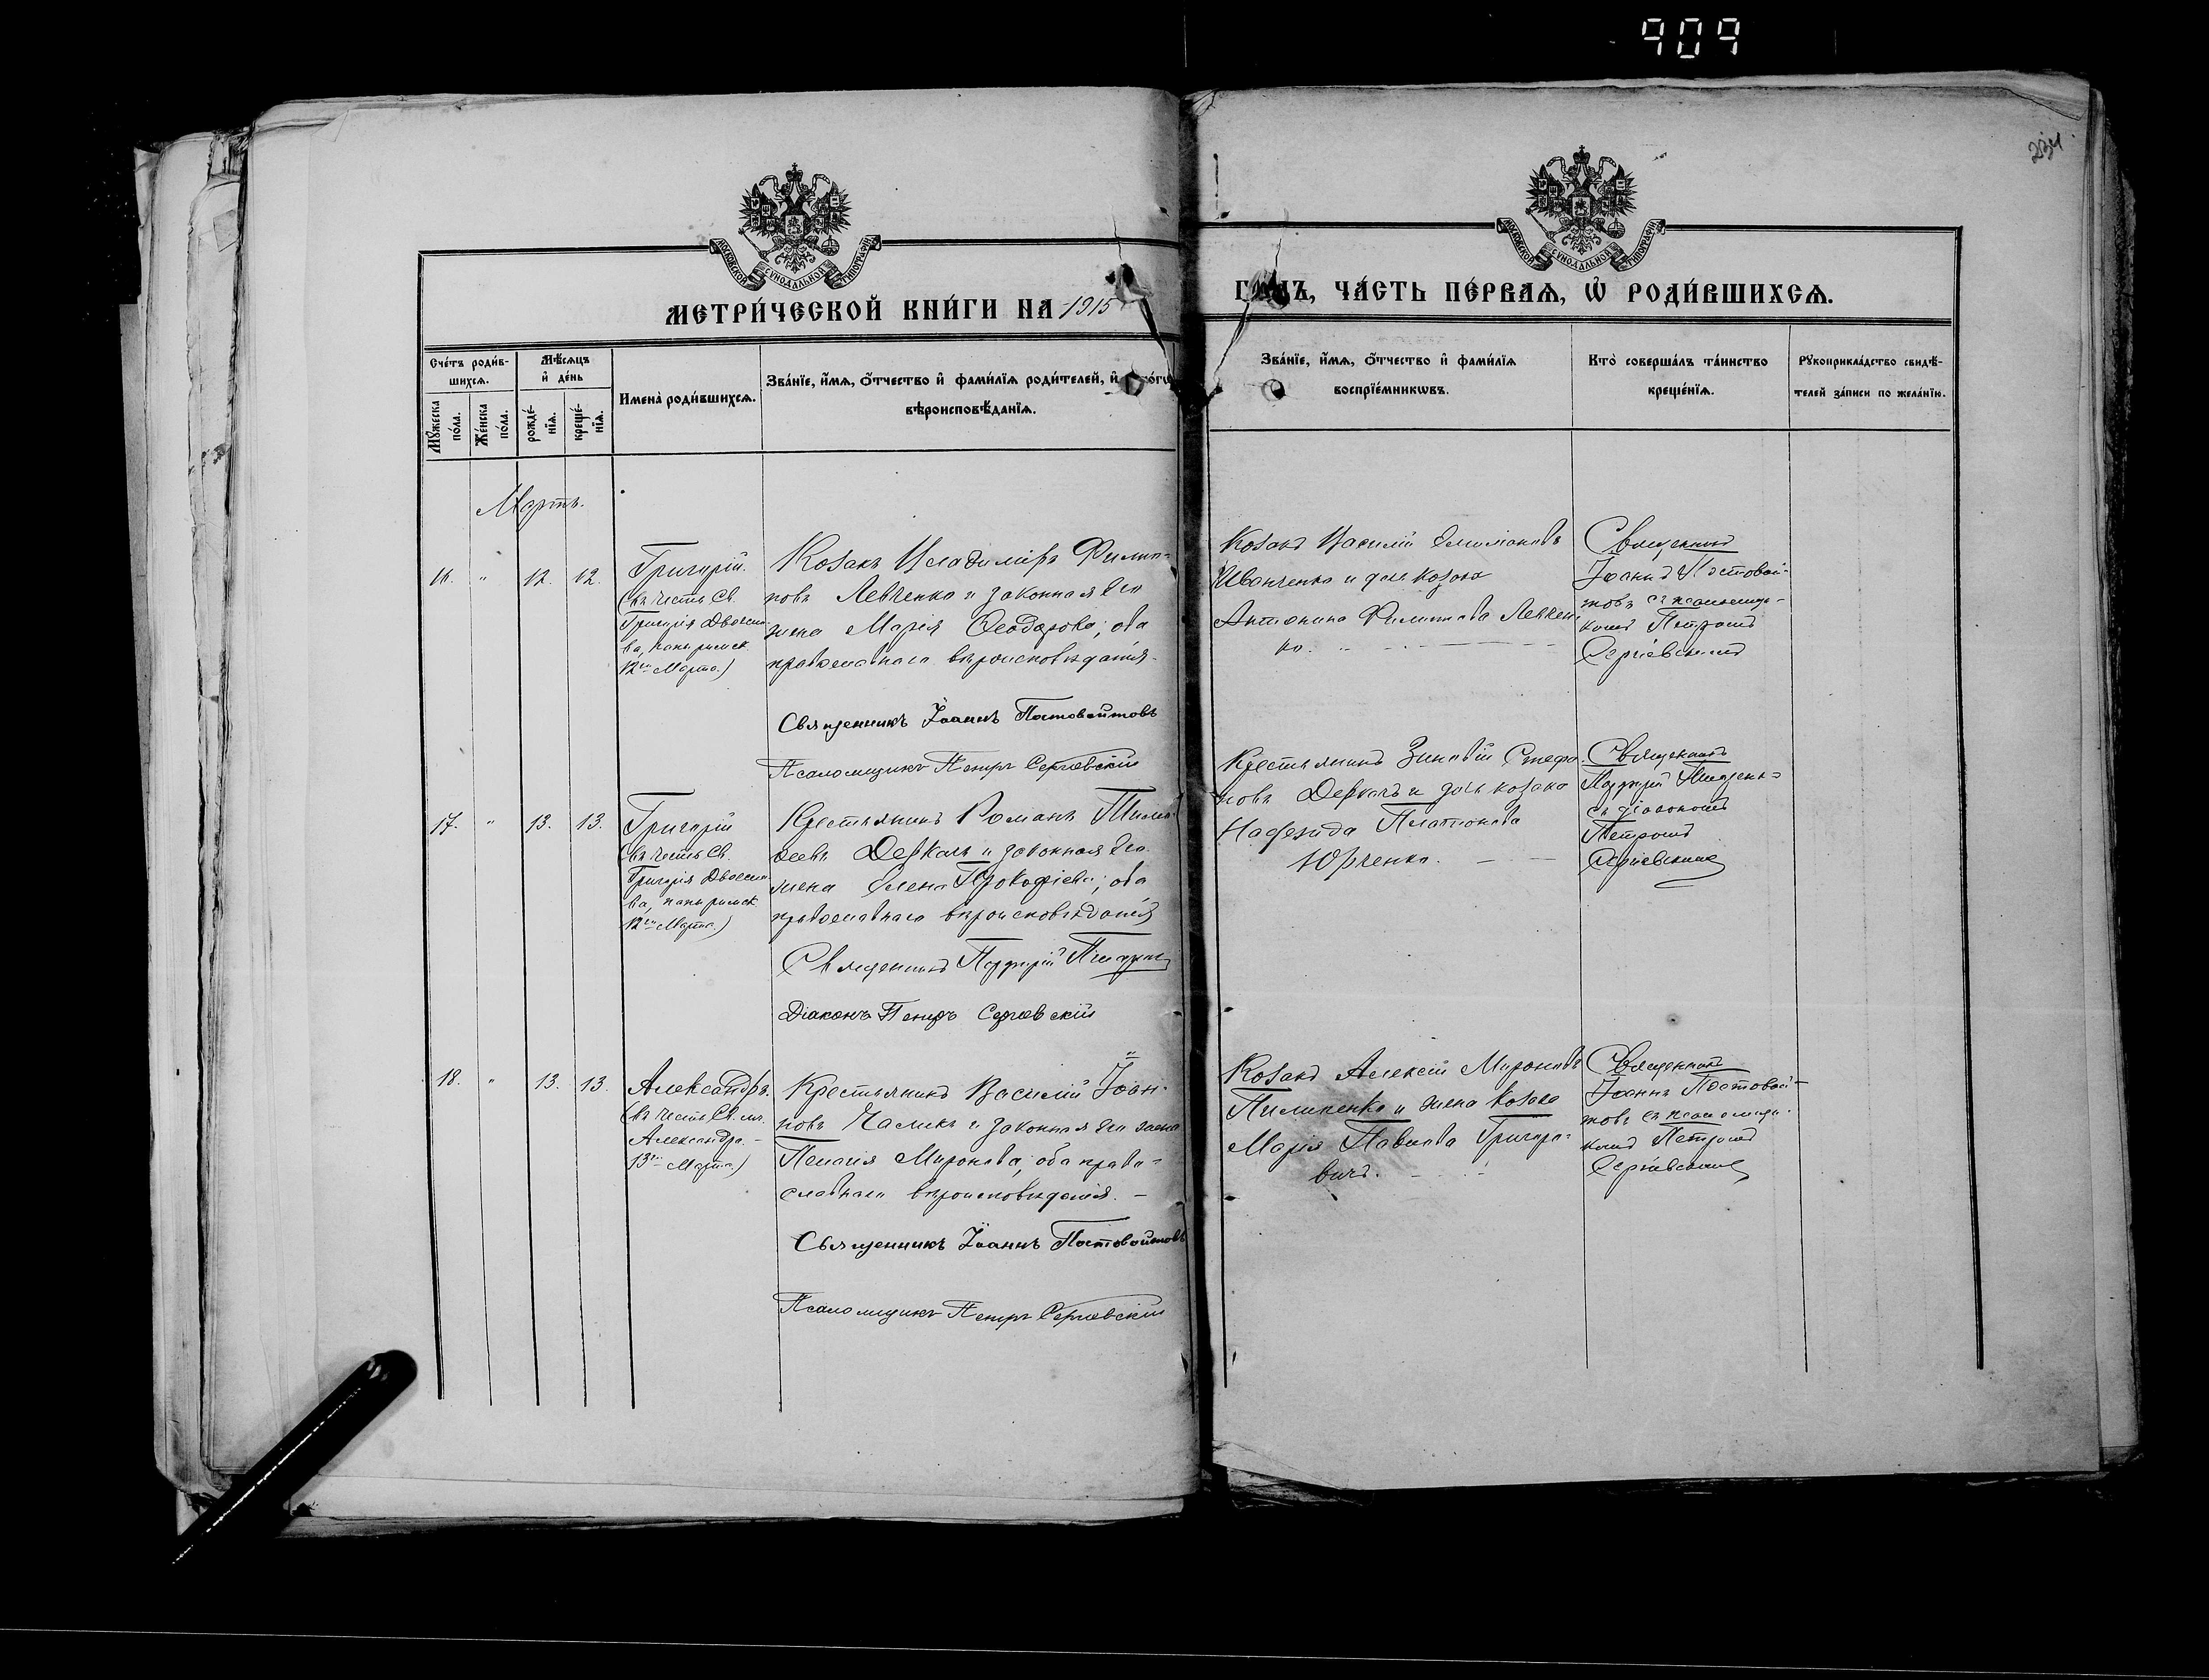 909
234
МОСКОВСКОЙ СУНОДАЛЬНОЙ ТИПОГРАФІИ
МОСКОВСКОЙ СУНОДАЛЬНОЙ ТИПОГРАФІИ
МЕТРИ́ЧЕСКОЙ КНИ́ГИ НА 1915
ГОДЪ, ЧА́СТЬ ПЕ́РВАѦ, Ѡ҆ РОДИ́ВШИХСѦ.
Сче́тъ роди́в-
шихсѧ.
Мꙋ́жеска по́ла.
Же́нска по́ла.
Мѣ́сѧцъ
и҆ де́нь
рожде́-
нїѧ.
креще́-
нїѧ.
Имена̀ роди́вшихсѧ.
Зва́нїе, и҆́мѧ, ѻ҆́тчество и҆ фами́лїѧ роди́телей, и҆
вѣроисповѣ́данїѧ.
Зва́нїе, и҆́мѧ, ѻ҆́тчество и҆ фами́лїѧ
воспрїе́мникѡвъ.
Кто̀ соверша́лъ та́инство
креще́нїѧ.
Рꙋкоприкла́дство свидѣ́-
телей за́писи по жела́нїю.
Мартъ.
16. " 12. 12.
Григорій.
(въ честь Св.
Григорія Двоесло
ва, папы римск.
12го Марта.)
Козакъ Владиміръ Филип-
повъ Левченко и законная его
жена Марія Ѳеодорова, оба
православнаго вѣроисповѣданія.
Священникъ Іоаннъ Постовойтовъ
Псаломщикъ Петръ Сергіевскій
Козакъ Василій
Иванченко и дочь козака
Антонина Филиппова Левчен-
ко.
Священникъ
Іоаннъ Постовой-
товъ съ псаломщи-
комъ Петромъ
Сергіевскимъ
17. " 13. 13.
Григорій
(въ честь Св.
Григорія Двоесло
ва, папы римск.
12го Марта.)
Крестьянинъ Романъ Тимо-
ѳеевъ Деркачъ и законная его
жена Елена Прокофіева, оба
православнаго вѣроисповѣданія
Священникъ Порфирій
Діаконъ Петръ Сергіевскій
Крестьянинъ Зиновій Стефа
новъ Деркачъ и дочь козака
Надежда Платонова
Юрченко.
Священникъ
Порфирій
съ діакономъ
Петромъ
Сергіевскимъ
18. " 13. 13.
Александръ.
(въ честь Св. мч.
Александра.
13го Марта.)
Крестьянинъ Василій Іоан-
новъ Чалыкъ и законная его жена
Пелагія Миронова, оба право-
славнаго вѣроисповѣданія.
Священникъ Іоаннъ Постовойтовъ
Псаломщикъ Петръ Сергіевскій
Козакъ Алексій Мироновъ
Пилипенко и жена козака
Марія Павлова Григоро-
вичъ.
Священникъ
Іоаннъ Постовой-
товъ съ псаломщи-
комъ Петромъ
Сергіевскимъ